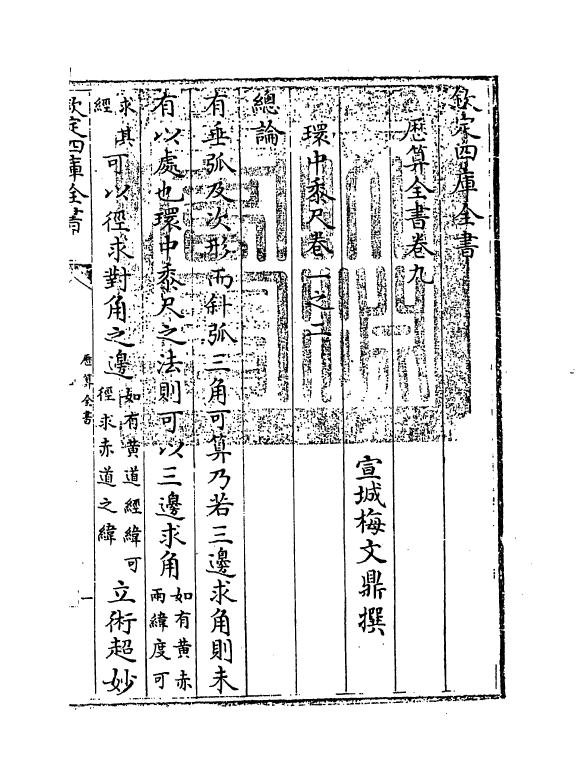 欽定四庫全書
厯算全書卷九
宣城梅文鼎撰
環中黍尺卷一之二
總論
有垂弧及次形而斜弧三角可算乃若三邊求角則未
有以處也環中黍尺之法則可以三邊求角如有黄赤
兩緯度可
求其
經可以徑求對角之邊如有黄道經緯可
徑求赤道之緯立術超妙
欽定四庫全書
厯算全書
一